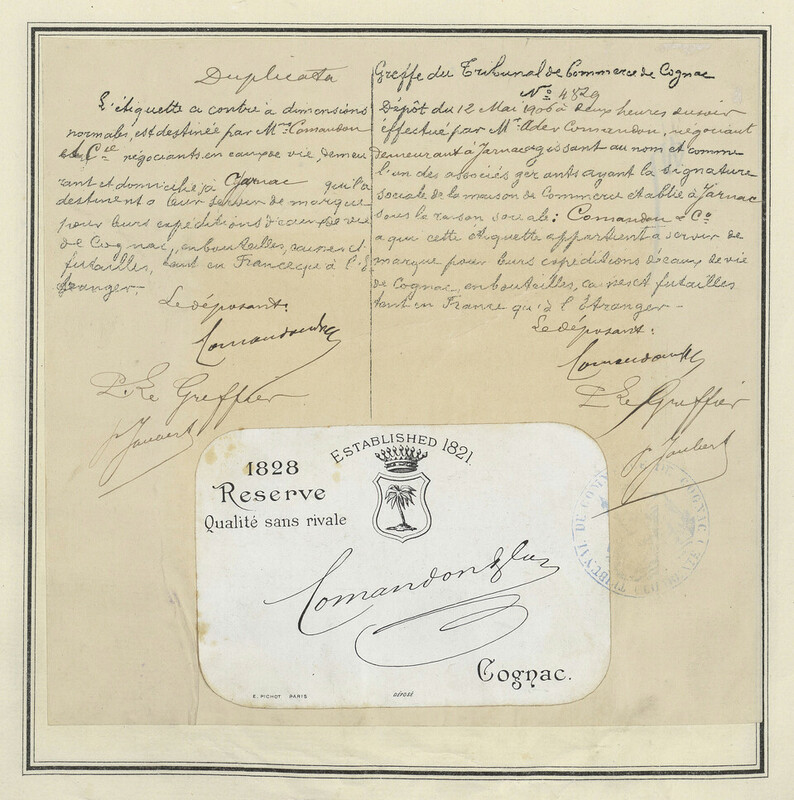 Duplicata
L'étiquette ci contre à dimensions
normales, est destinée par Mrs Comandon
& Cie négociants en eaux de vie, demeu
rant et domiciliés à Jarnac qui la
destinent à leur servir de marque
pour leurs expéditions d'eaux de vie
de Cognac, en bouteilles, caisses et
futailles, tant en France qu'à l'É
tranger.
Le déposant:
Comandon & Co
P. Le Greffier
Jaubert
Greffe du Tribunal de Commerce de Cognac
No 4829
Dépôt du 12 Mai 1906 à deux heures du soir
éffectué par Mr Ader Comandon, négociant
demeurant à Jarnac agissant au nom et comme
l'un des associés gérants ayant la signature
sociale de la maison de Commerce etablie à Jarnac
sous la raison sociale: Comandon & Co
a qui cette étiquette appartient à servir de
marque pour leurs expéditions d'eaux de vie
de Cognac, en bouteilles, caisses et futailles
tant en France qu'à l'Étranger
Le déposant:
Comandon & Co
P. Le Greffier
Jaubert
ESTABLISHED 1821.
1828
Reserve
Qualité sans rivale
Comandon & Co
Cognac.
E. PICHOT PARIS
DÉPOSÉ
TRIBUNAL DE COMM DE COGNAC